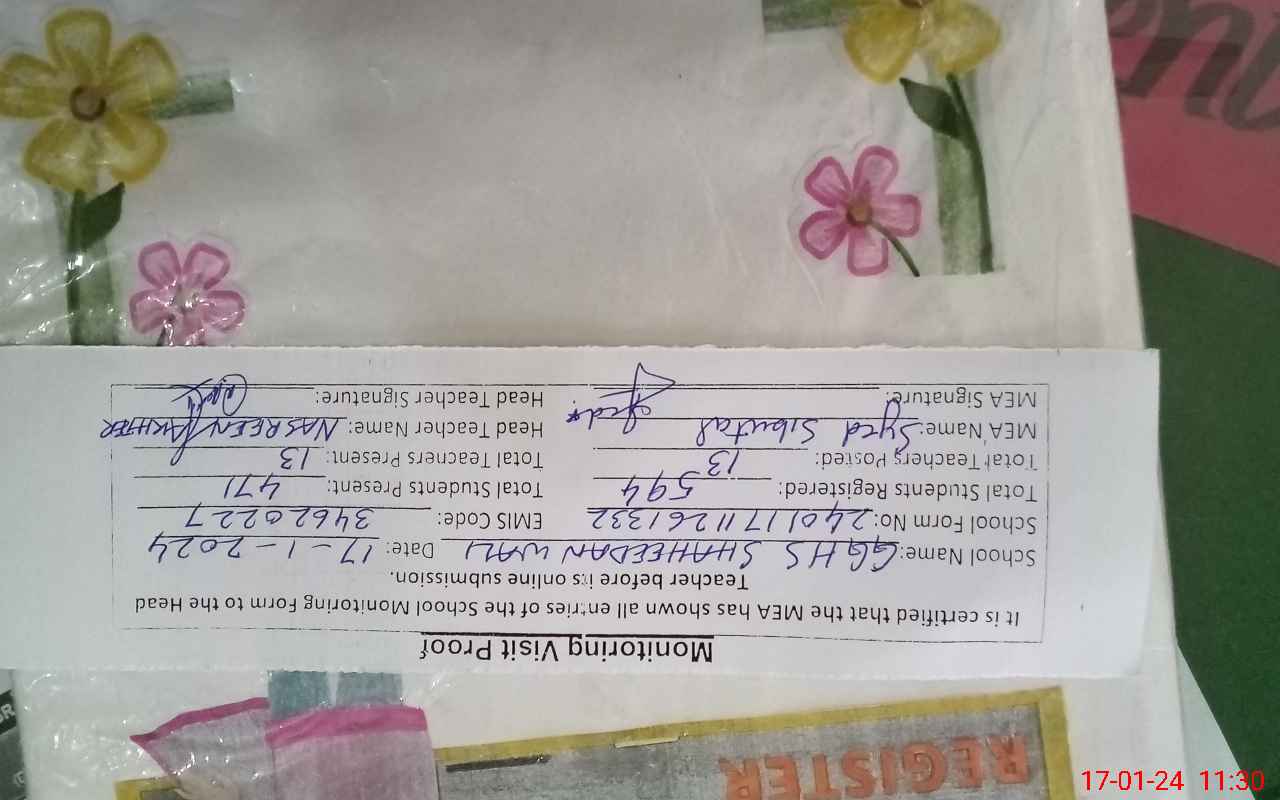 Monitoring Visit Proof
It is certified that the MEA has shown all entries of the School Monitoring Form to the Head
Teacher before its online submission.
School Name: GGHS SHAHEEDAN WALI Date: 17-1-2024
School Form No: 24011711261332 EMIS Code: 34620227
Total Students Registered: 594 Total Students Present: 471
Total Teachers Posted: 13 Total Teachers Present: 13
MEA Name: Syed Sibutal Head Teacher Name: NASREEN AKHTER
MEA Signature: Head Teacher Signature:
REGISTER
17-01-24 11:30